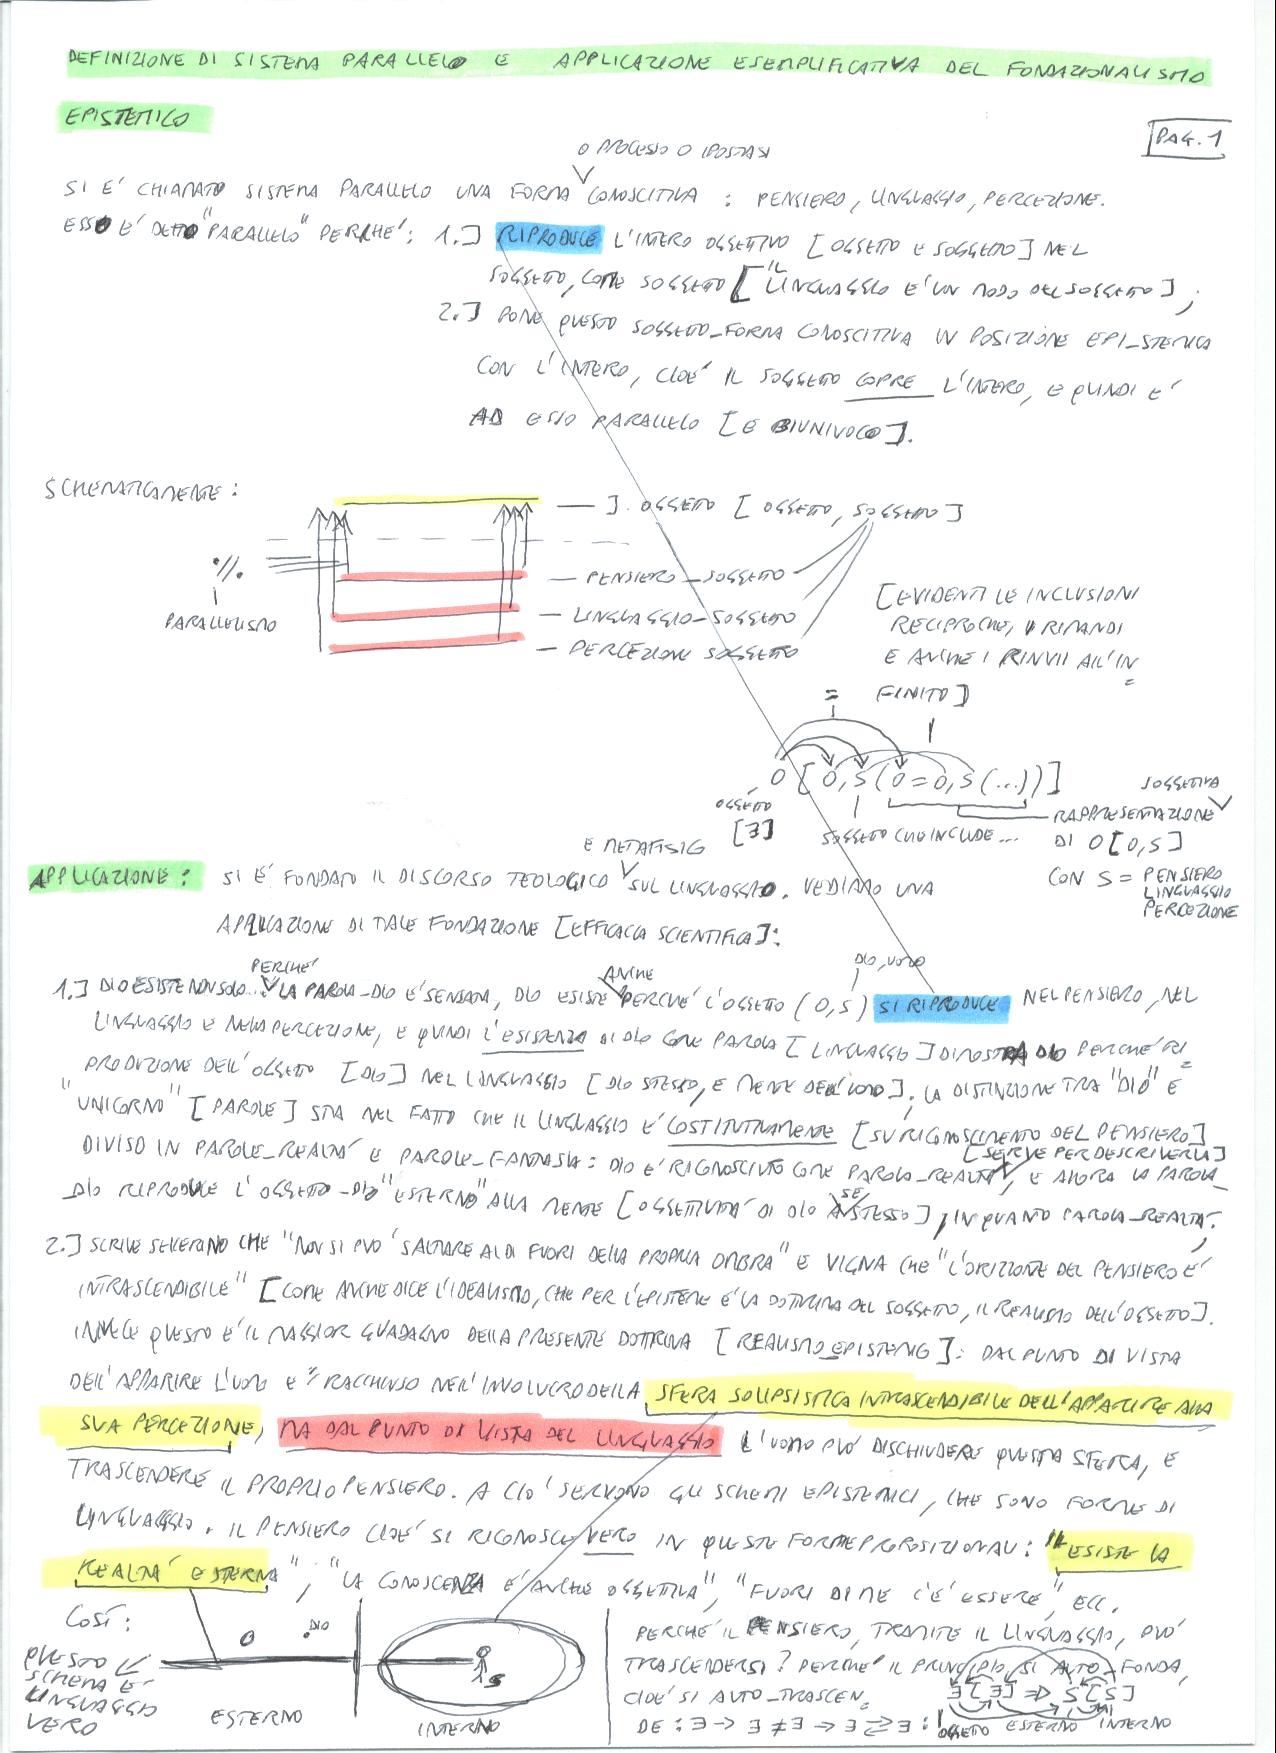 DEFINIZIONE DI SISTEMA PARALLELO E APPLICAZIONE ESEMPLIFICATIVA DEL FONDAZIONALISMO
EPISTEMICO
PAG. 1
O PROCESSO O IPOSTASI
SI E' CHIAMATO SISTEMA PARALLELO UNA FORMA CONOSCITIVA : PENSIERO, LINGUAGGIO, PERCEZIONE.
ESSO E' DETTO "PARALLELO" PERCHE': 1.] RIPRODUCE L'INTERO OGGETTIVO [OGGETTO E SOGGETTO] NEL
SOGGETTO, COME SOGGETTO [IL LINGUAGGIO E' UN MODO DEL SOGGETTO];
2.] PONE QUESTO SOGGETTO_FORMA CONOSCITIVA IN POSIZIONE EPI_STEMICA
CON L'INTERO, CIOE' IL SOGGETTO COPRE L'INTERO, E QUINDI E'
AD ESSO PARALLELO [E BIUNIVOCO].
SCHEMATICAMENTE:
— ]. OGGETTO [OGGETTO, SOGGETTO]
— PENSIERO_SOGGETTO
— LINGUAGGIO_SOGGETTO
— PERCEZIONE SOGGETTO
PARALLELISMO
[EVIDENTI LE INCLUSIONI
RECIPROCHE, I RIMANDI
E ANCHE I RINVII ALL'IN=
FINITO]
=
O [O, S (O = O, S (...))]
OGGETTO
[Ǝ]
SOGGETTO CHE INCLUDE...
SOGGETTIVA
RAPPRESENTAZIONE
DI O[O,S]
CON S = PENSIERO
LINGUAGGIO
PERCEZIONE
E METAFISICO
APPLICAZIONE: SI E' FONDATO IL DISCORSO TEOLOGICO SUL LINGUAGGIO. VEDIAMO UNA
APPLICAZIONE DI TALE FONDAZIONE [EFFICACIA SCIENTIFICA]:
PERCHE' ANCHE DIO, UOMO
1.] DIO ESISTE NON SOLO... LA PAROLA_DIO E' SENSATA, DIO ESISTE PERCHE' L'OGGETTO (O,S) SI RIPRODUCE NEL PENSIERO, NEL
LINGUAGGIO E NELLA PERCEZIONE, E QUINDI L'ESISTENZA DI DIO COME PAROLA [LINGUAGGIO] DIMOSTRA DIO PERCHE' RI=
PRODUZIONE DELL'OGGETTO [DIO] NEL LINGUAGGIO [DIO STESSO, E MENTE DELL'UOMO]. LA DISTINZIONE TRA "DIO" E
"UNICORNO" [PAROLE] STA NEL FATTO CHE IL LINGUAGGIO E' COSTITUTIVAMENTE [SU RICONOSCIMENTO DEL PENSIERO]
DIVISO IN PAROLE_REALTA' E PAROLE_FANTASIA: DIO E' RICONOSCIUTO COME PAROLA_REALTA' [SERVE PER DESCRIVERLA], E ALLORA LA PAROLA_
DIO RIPRODUCE L'OGGETTO_DIO "ESTERNO" ALLA MENTE [OGGETTIVITA' DI DIO SE STESSO], IN QUANTO PAROLA_REALTA'.
2.] SCRIVE SEVERINO CHE "NON SI PUO' SALTARE AL DI FUORI DELLA PROPRIA OMBRA" E VIGNA CHE "L'ORIZZONTE DEL PENSIERO E'
INTRASCENDIBILE" [COME ANCHE DICE L'IDEALISMO, CHE PER L'EPISTEME E' LA DOTTRINA DEL SOGGETTO, IL REALISMO DELL'OGGETTO].
INVECE QUESTO E' IL MAGGIOR GUADAGNO DELLA PRESENTE DOTTRINA [REALISMO EPISTEMICO]: DAL PUNTO DI VISTA
DELL'APPARIRE L'UOMO E' RACCHIUSO NELL'INVOLUCRO DELLA SFERA SOLIPSISTICA INTRASCENDIBILE DELL'APPARIRE ALLA
SUA PERCEZIONE, MA DAL PUNTO DI VISTA DEL LINGUAGGIO L'UOMO PUO' DISCHIUDERE QUESTA SFERA, E
TRASCENDERE IL PROPRIO PENSIERO. A CIO' SERVONO GLI SCHEMI EPISTEMICI, CHE SONO FORME DI
LINGUAGGIO. IL PENSIERO CIOE' SI RICONOSCE VERO IN QUESTE FORME PROPOSIZIONALI: "ESISTE LA
REALTA' ESTERNA", "LA CONOSCENZA E' ANCHE OGGETTIVA", "FUORI DI ME C'E' ESSERE", ECC.
COSÌ:
QUESTO
SCHEMA E'
LINGUAGGIO
VERO
O
DIO
S
ESTERNO
INTERNO
PERCHE' IL PENSIERO, TRAMITE IL LINGUAGGIO, PUO'
TRASCENDERSI? PERCHE' IL PRINCIPIO SI AUTO_FONDA,
CIOE' SI AUTO_TRASCEN=
DE: Ǝ -> Ǝ ≠ Ǝ -> Ǝ ⪌ Ǝ :
Ǝ[Ǝ] => S[S]
OGGETTO ESTERNO INTERNO